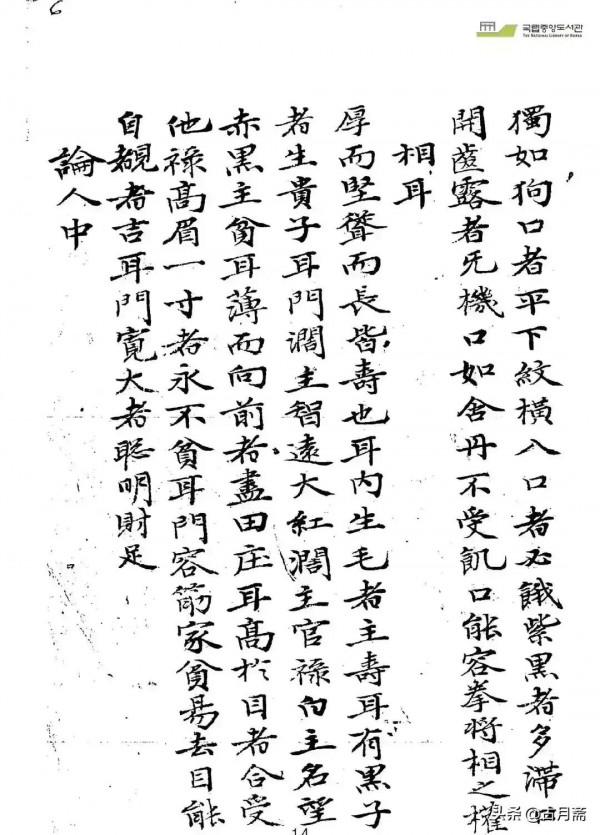 국립중앙도서관
THE NATIONAL LIBRARY OF KOREA
6
獨如狗口者平下紋橫入口者必餓紫黑者多滯口
開齒露者旡機口如舍丹不受飢口能容拳將相之權
相耳
厚而堅聳而長皆壽也耳內生毛者主壽耳有黑子
者生貴子耳門濶主智遠大紅濶主官祿白主名望
赤黑主貧耳薄而向前者盡田庄耳高於目者合受
他祿高眉一寸者永不貧耳門容筯家貧易去目能
自覩者吉耳門寬大者聡明財足
論人中
14
头条 @古月斋